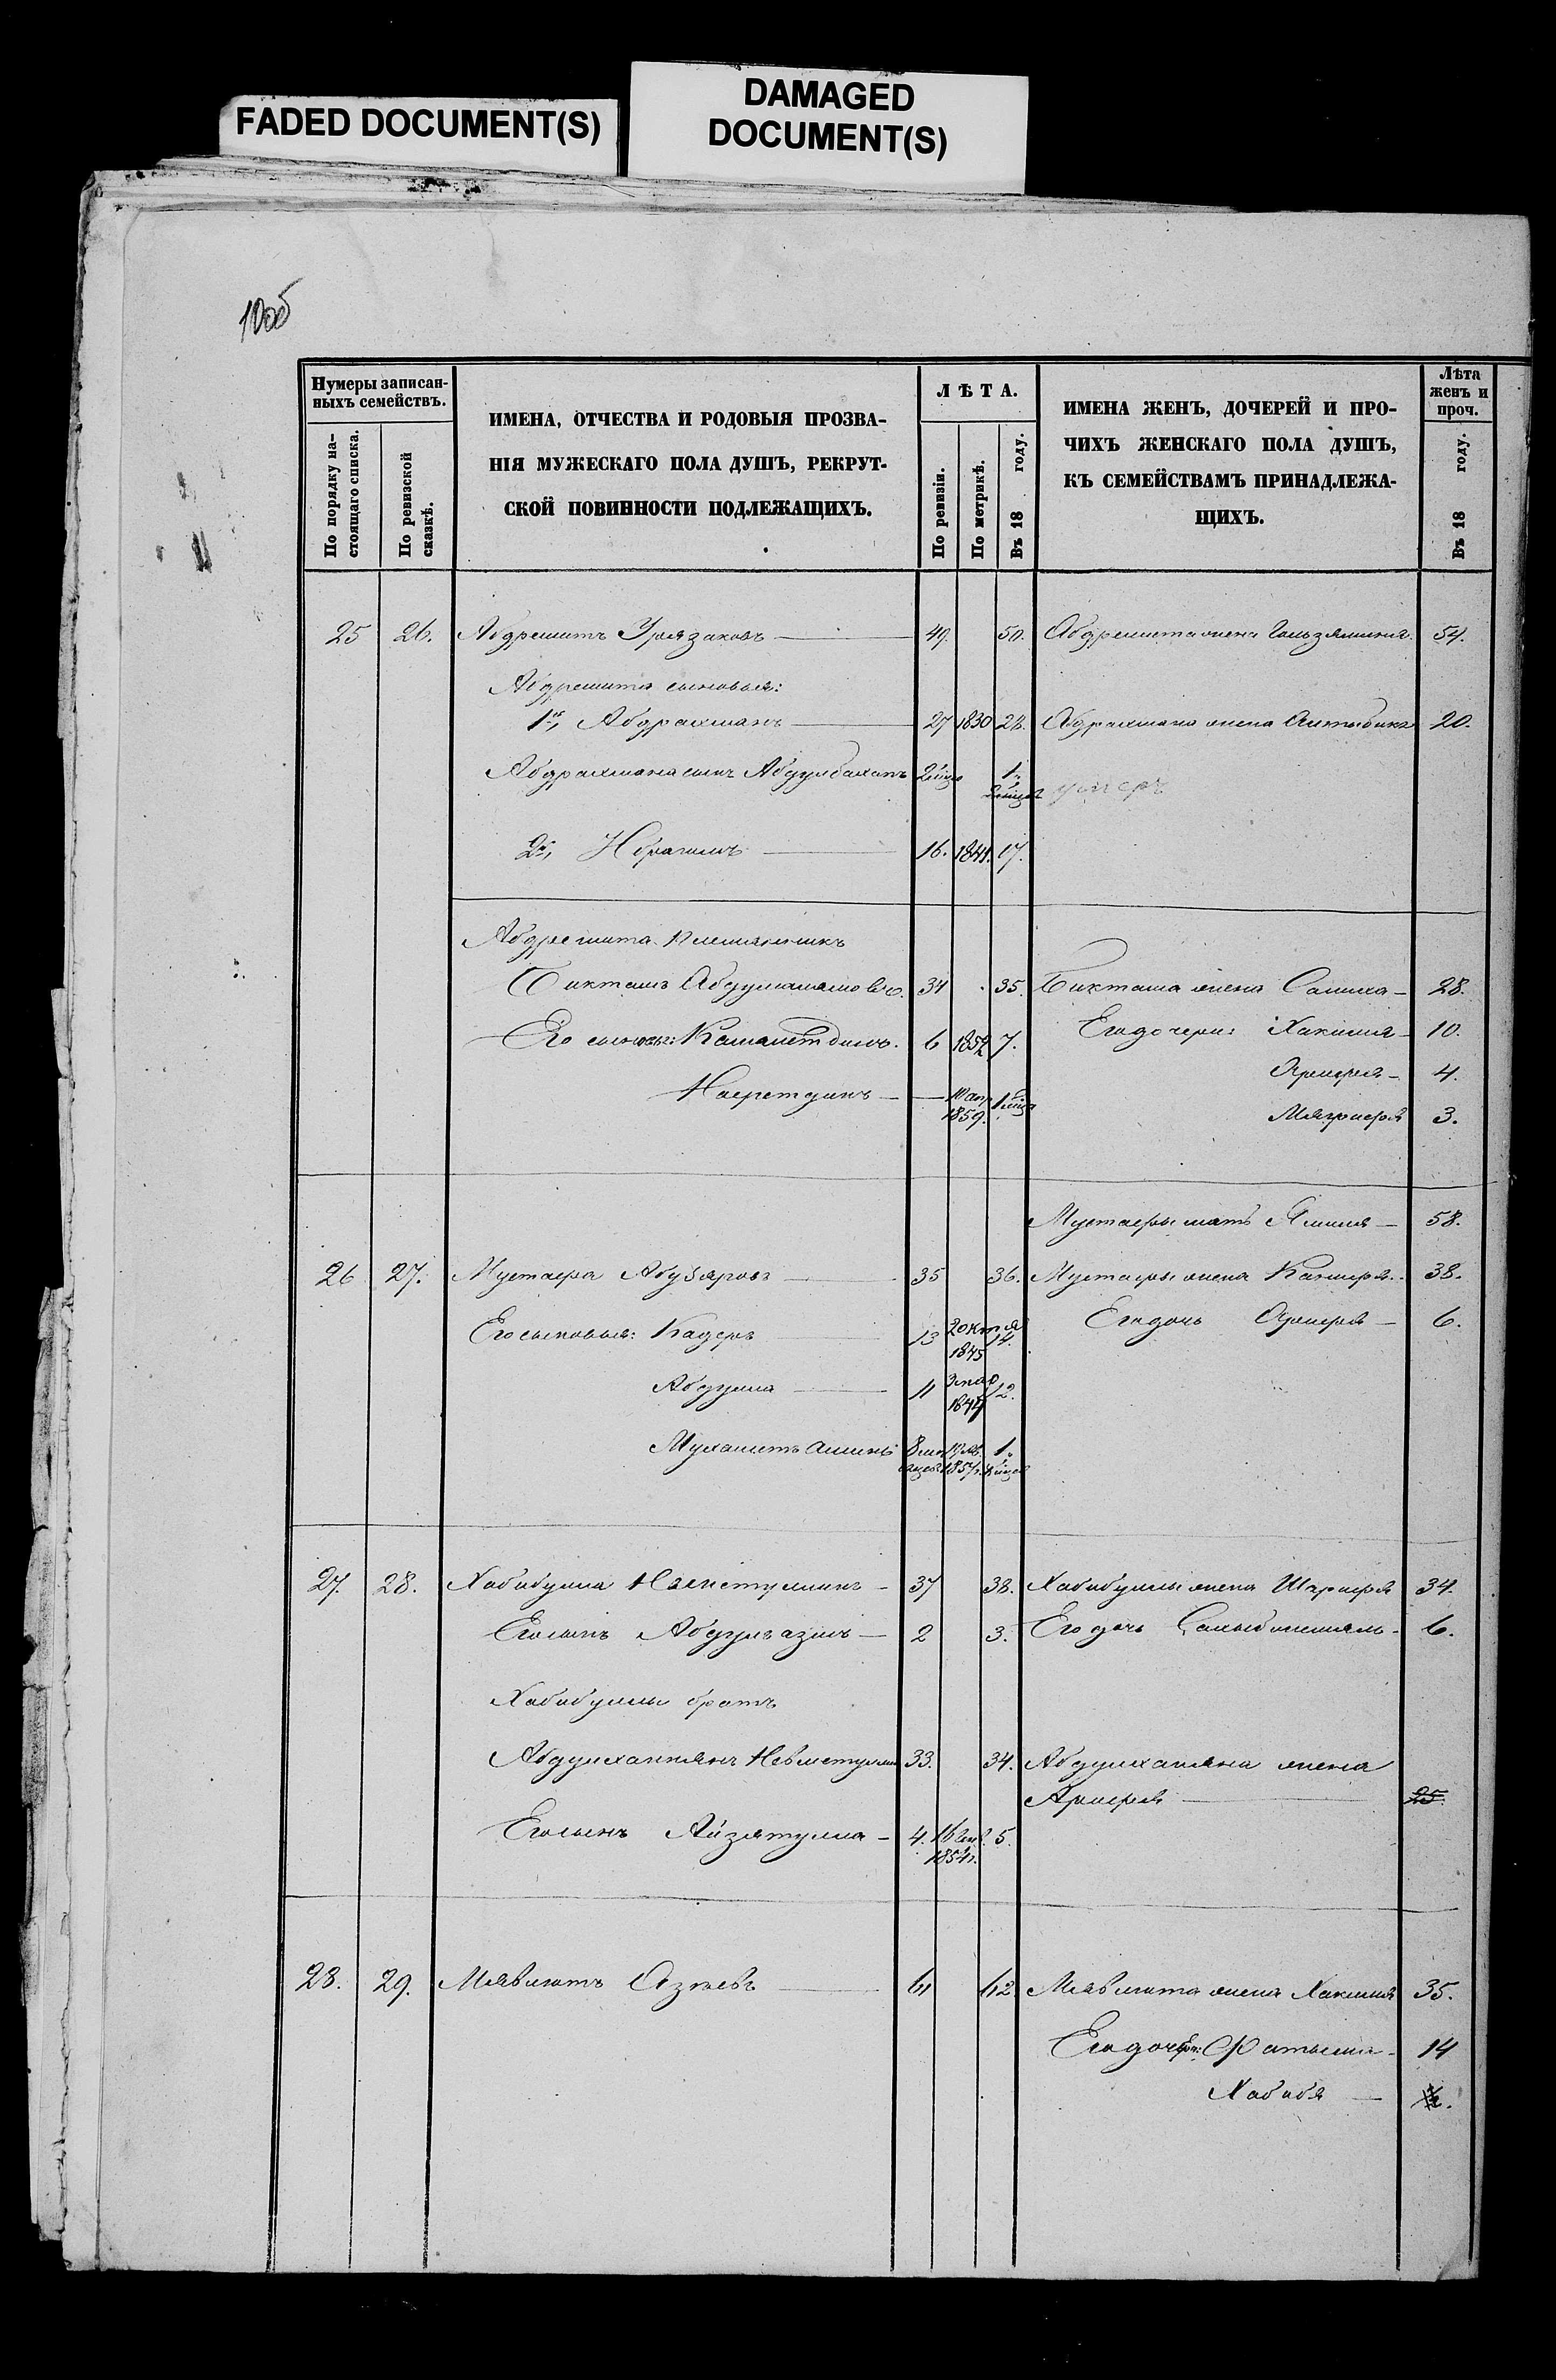 FADED DOCUMENT(S)
DAMAGED
DOCUMENT(S)
100об
Нумеры записан-
ныхъ семействъ.
По порядку на-
стоящаго списка.
По ревизской
сказкѣ.
ИМЕНА, ОТЧЕСТВА И РОДОВЫЯ ПРОЗВА-
НІЯ МУЖЕСКАГО ПОЛА ДУШЪ, РЕКРУТ-
СКОЙ ПОВИННОСТИ ПОДЛЕЖАЩИХЪ.
ЛѢТА.
По ревизіи.
По метрикѣ.
Въ 18 году.
ИМЕНА ЖЕНЪ, ДОЧЕРЕЙ И ПРО-
ЧИХЪ ЖЕНСКАГО ПОЛА ДУШЪ,
КЪ СЕМЕЙСТВАМЪ ПРИНАДЛЕЖА-
ЩИХЪ.
Лѣта
женъ и
проч.
Въ 18 году.
25 26. Абдрешитъ Урязаковъ — 49. 50. Абдрешита жена Гользямиля. 54.
Абдрешита сыновья:
1й, Абдрахманъ — 27 1830 28. Абдрахмана жена Алтынбика 20.
Абдрахмана сынъ 2 1, умеръ
2й, Ибрагимъ — 16. 1841. 17.
Абдрешита племянникъ
Бикташъ 34 35. Бикташа жена Салиха — 28.
Его сыновья: Камалетдинъ. 6 1852 7. Его дочери: Хакимя — 10.
Насретдинъ — 10 апр 1859. 1 Арифя — 4.
3.
Мустафы мать Ямиля — 58.
26 27. Мустафа Абузяровъ — 35 36. Мустафы жена 38.
Его сыновья: Кадеръ — 13 2 октя 1845 14. Его дочь Арифя — 6.
Абдулла — 11 12.
Мухаметъ Аминь 8 1.
27. 28. Хабибулла — 37 38. Хабибуллы жена Шарифя 34.
Его сынъ Абдулвазихъ — 2 3. Его дочь 6.
Хабибуллы братъ
Абдулханнянъ 33. 34. Абдулханяна жена
Арифя — 25.
Его сынъ Айзятулла — 4. 16 1854 г. 5.
28. 29. Мявлютъ Азѣевъ — 61 62 Мявлюта жена Хакимя 35.
Его дочери: Фатыма — 14
Хабибя —